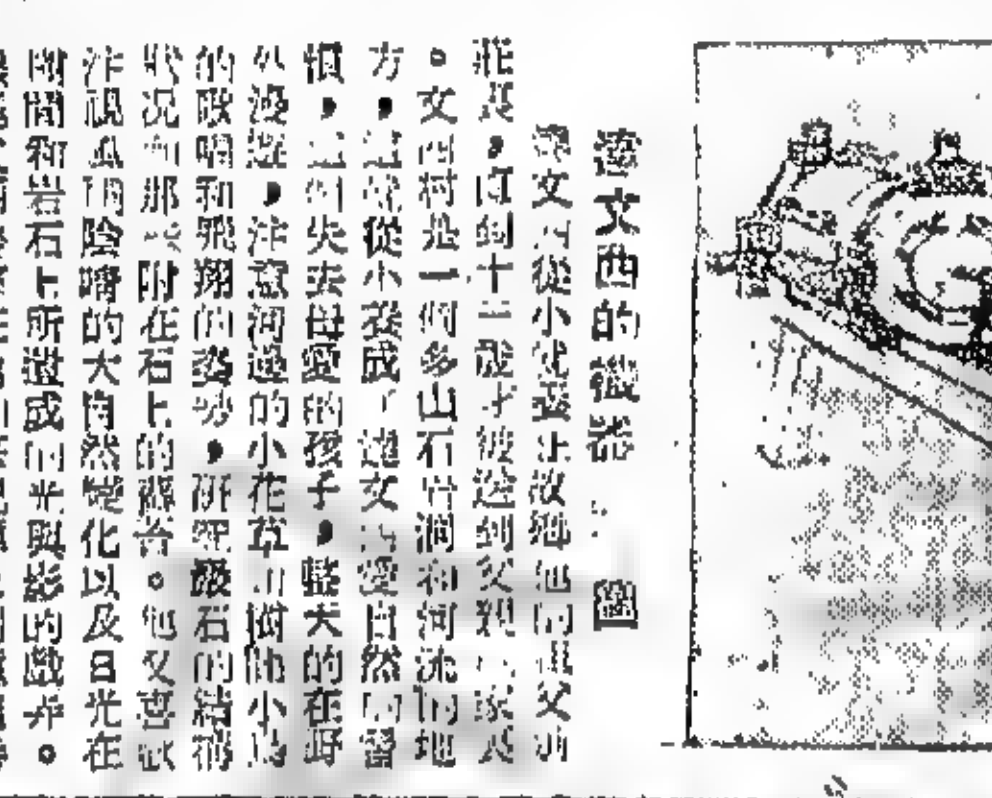 達文西的機器 圖
達文西從小就養在故鄉他的祖父的
莊裏,直到十二歲才被送到父親的家裏
。文西村是一個多山石岩洞和河流的地
方,這就從小養成了達文西愛自然的習
慣,這個失去母愛的孩子,整天的在野
外漫遊,注意河邊的小花草和樹他小鳥
的歌唱和飛翔的姿勢,研究嚴石的結構
狀況和那些附在石上的蘚苔。他又喜歡
注視風雨陰晴的大自然變化以及日光在
間和岩石上所造成的光與影的戲弄。